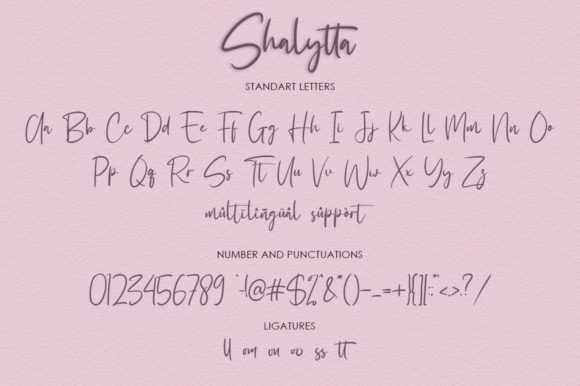 Shalytta
STANDART LETTERS
Aa Bb Cc Dd Ee Ff Gg Hh Ii Jj Kk Ll Mm Nn Oo
Pp Qq Rr Ss Tt Uu Vv Ww Xx Yy Zz
mûltilîngüâl sûppòrt
NUMBER AND PUNCTUATIONS
0123456789 `~!@#$%^&*()-_=+}{][|:;"'<,>.?/
LIGATURES
ll om on ov ss tt